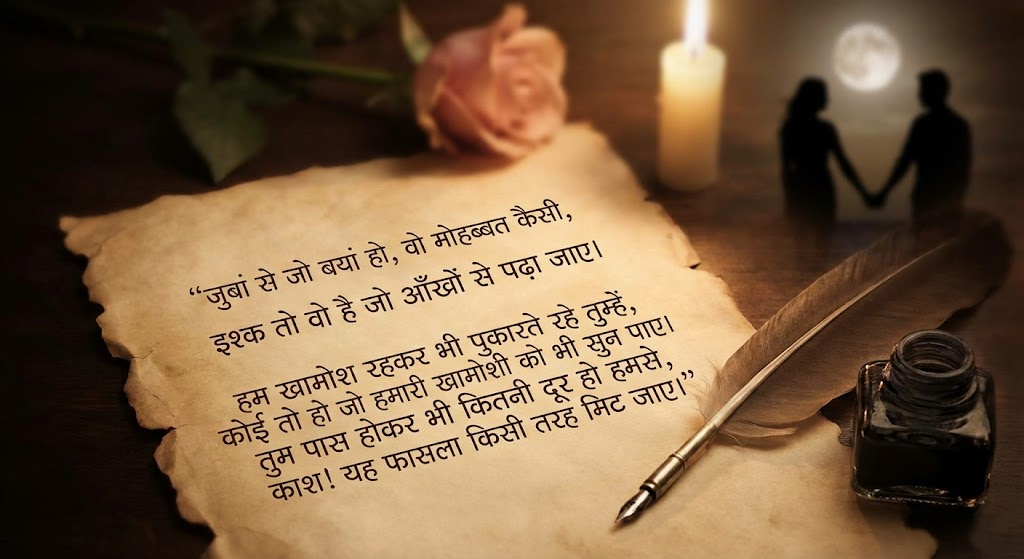 “जुबां से जो बयां हो, वो मोहब्बत कैसी,
इश्क तो वो है जो आँखों से पढ़ा जाए।
हम खामोश रहकर भी पुकारते रहे तुम्हें,
कोई तो हो जो हमारी खामोशी को भी सुन पाए।
तुम पास होकर भी कितनी दूर हो हमसे,
काश! यह फासला किसी तरह मिट जाए।”